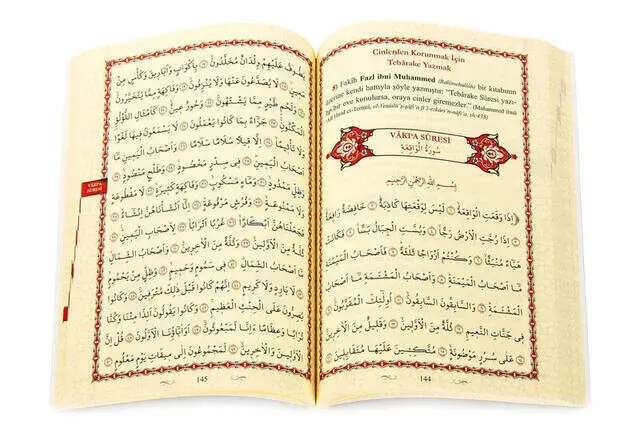 Cinlerden Korunmak İçin
Tebârake Yazmak
8) Fakîh Fazl ibni Muhammed (Rahimehullâh) bir kitabının
üzerine kendi hattıyla şöyle yazmıştır: "Tebârake Sûresi yazı-
lıp bir eve konulursa, oraya cinler giremezler." (Muhammed ibnü
VÂKI'A SÛRESİ
سُورَةُ الْوَاقِعَةِ
بِسْمِ اللهِ الرَّحْمٰنِ الرَّحِيمِ
اِذَا وَقَعَتِ الْوَاقِعَةُ ۝ لَيْسَ لِوَقْعَتِهَا كَاذِبَةٌ ۝ خَافِضَةٌ رَافِعَةٌ
اِذَا رُجَّتِ الْاَرْضُ رَجًّا ۝ وَبُسَّتِ الْجِبَالُ بَسًّا ۝ فَكَانَتْ
هَبَاءً مُنْبَثًّا ۝ وَكُنْتُمْ اَزْوَاجًا ثَلٰثَةً ۝ فَاَصْحَابُ الْمَيْمَنَةِ
مَا اَصْحَابُ الْمَيْمَنَةِ ۝ وَاَصْحَابُ الْمَشْـَٔمَةِ مَا اَصْحَابُ
الْمَشْـَٔمَةِ ۝ وَالسَّابِقُونَ السَّابِقُونَ ۝ اُولٰئِكَ الْمُقَرَّبُونَ
فِى جَنَّاتِ النَّعِيمِ ۝ ثُلَّةٌ مِنَ الْاَوَّلِينَ ۝ وَقَلِيلٌ مِنَ الْاٰخِرِينَ
عَلٰى سُرُرٍ مَوْضُونَةٍ ۝ مُتَّكِـِٔينَ عَلَيْهَا مُتَقَابِلِينَ
144
يَطُوفُ عَلَيْهِمْ وِلْدَانٌ مُخَلَّدُونَ ۝ بِاَكْوَابٍ وَاَبَارِيقَ وَكَأْسٍ مِنْ
مَعِينٍ ۝ لَا يُصَدَّعُونَ عَنْهَا وَلَا يُنْزِفُونَ ۝ وَفَاكِهَةٍ مِمَّا يَتَخَيَّرُونَ
وَلَحْمِ طَيْرٍ مِمَّا يَشْتَهُونَ ۝ وَحُورٌ عِينٌ ۝ كَاَمْثَالِ اللُّؤْلُؤِ
الْمَكْنُونِ ۝ جَزَاءً بِمَا كَانُوا يَعْمَلُونَ ۝ لَا يَسْمَعُونَ فِيهَا لَغْوًا
وَلَا تَأْثِيمًا ۝ اِلَّا قِيلًا سَلَامًا سَلَامًا ۝ وَاَصْحَابُ الْيَمِينِ مَا
اَصْحَابُ الْيَمِينِ ۝ فِى سِدْرٍ مَخْضُودٍ ۝ وَطَلْحٍ مَنْضُودٍ
وَظِلٍّ مَمْدُودٍ ۝ وَمَاءٍ مَسْكُوبٍ ۝ وَفَاكِهَةٍ كَثِيرَةٍ ۝ لَا مَقْطُوعَةٍ
وَلَا مَمْنُوعَةٍ ۝ وَفُرُشٍ مَرْفُوعَةٍ ۝ اِنَّا اَنْشَأْنَاهُنَّ اِنْشَاءً
فَجَعَلْنَاهُنَّ اَبْكَارًا ۝ عُرُبًا اَتْرَابًا ۝ لِاَصْحَابِ الْيَمِينِ
ثُلَّةٌ مِنَ الْاَوَّلِينَ ۝ وَثُلَّةٌ مِنَ الْاٰخِرِينَ ۝ وَاَصْحَابُ الشِّمَالِ
مَا اَصْحَابُ الشِّمَالِ ۝ فِى سَمُومٍ وَحَمِيمٍ ۝ وَظِلٍّ مِنْ يَحْمُومٍ
لَا بَارِدٍ وَلَا كَرِيمٍ ۝ اِنَّهُمْ كَانُوا قَبْلَ ذٰلِكَ مُتْرَفِينَ ۝ وَكَانُوا
يُصِرُّونَ عَلَى الْحِنْثِ الْعَظِيمِ ۝ وَكَانُوا يَقُولُونَ اَئِذَا مِتْنَا وَكُنَّا
تُرَابًا وَعِظَامًا ءَاِنَّا لَمَبْعُوثُونَ ۝ اَوَاٰبَاؤُنَا الْاَوَّلُونَ ۝ قُلْ اِنَّ
الْاَوَّلِينَ وَالْاٰخِرِينَ ۝ لَمَجْمُوعُونَ اِلٰى مِيقَاتِ يَوْمٍ مَعْلُومٍ
145
VÂKI'A
SÛRESİ